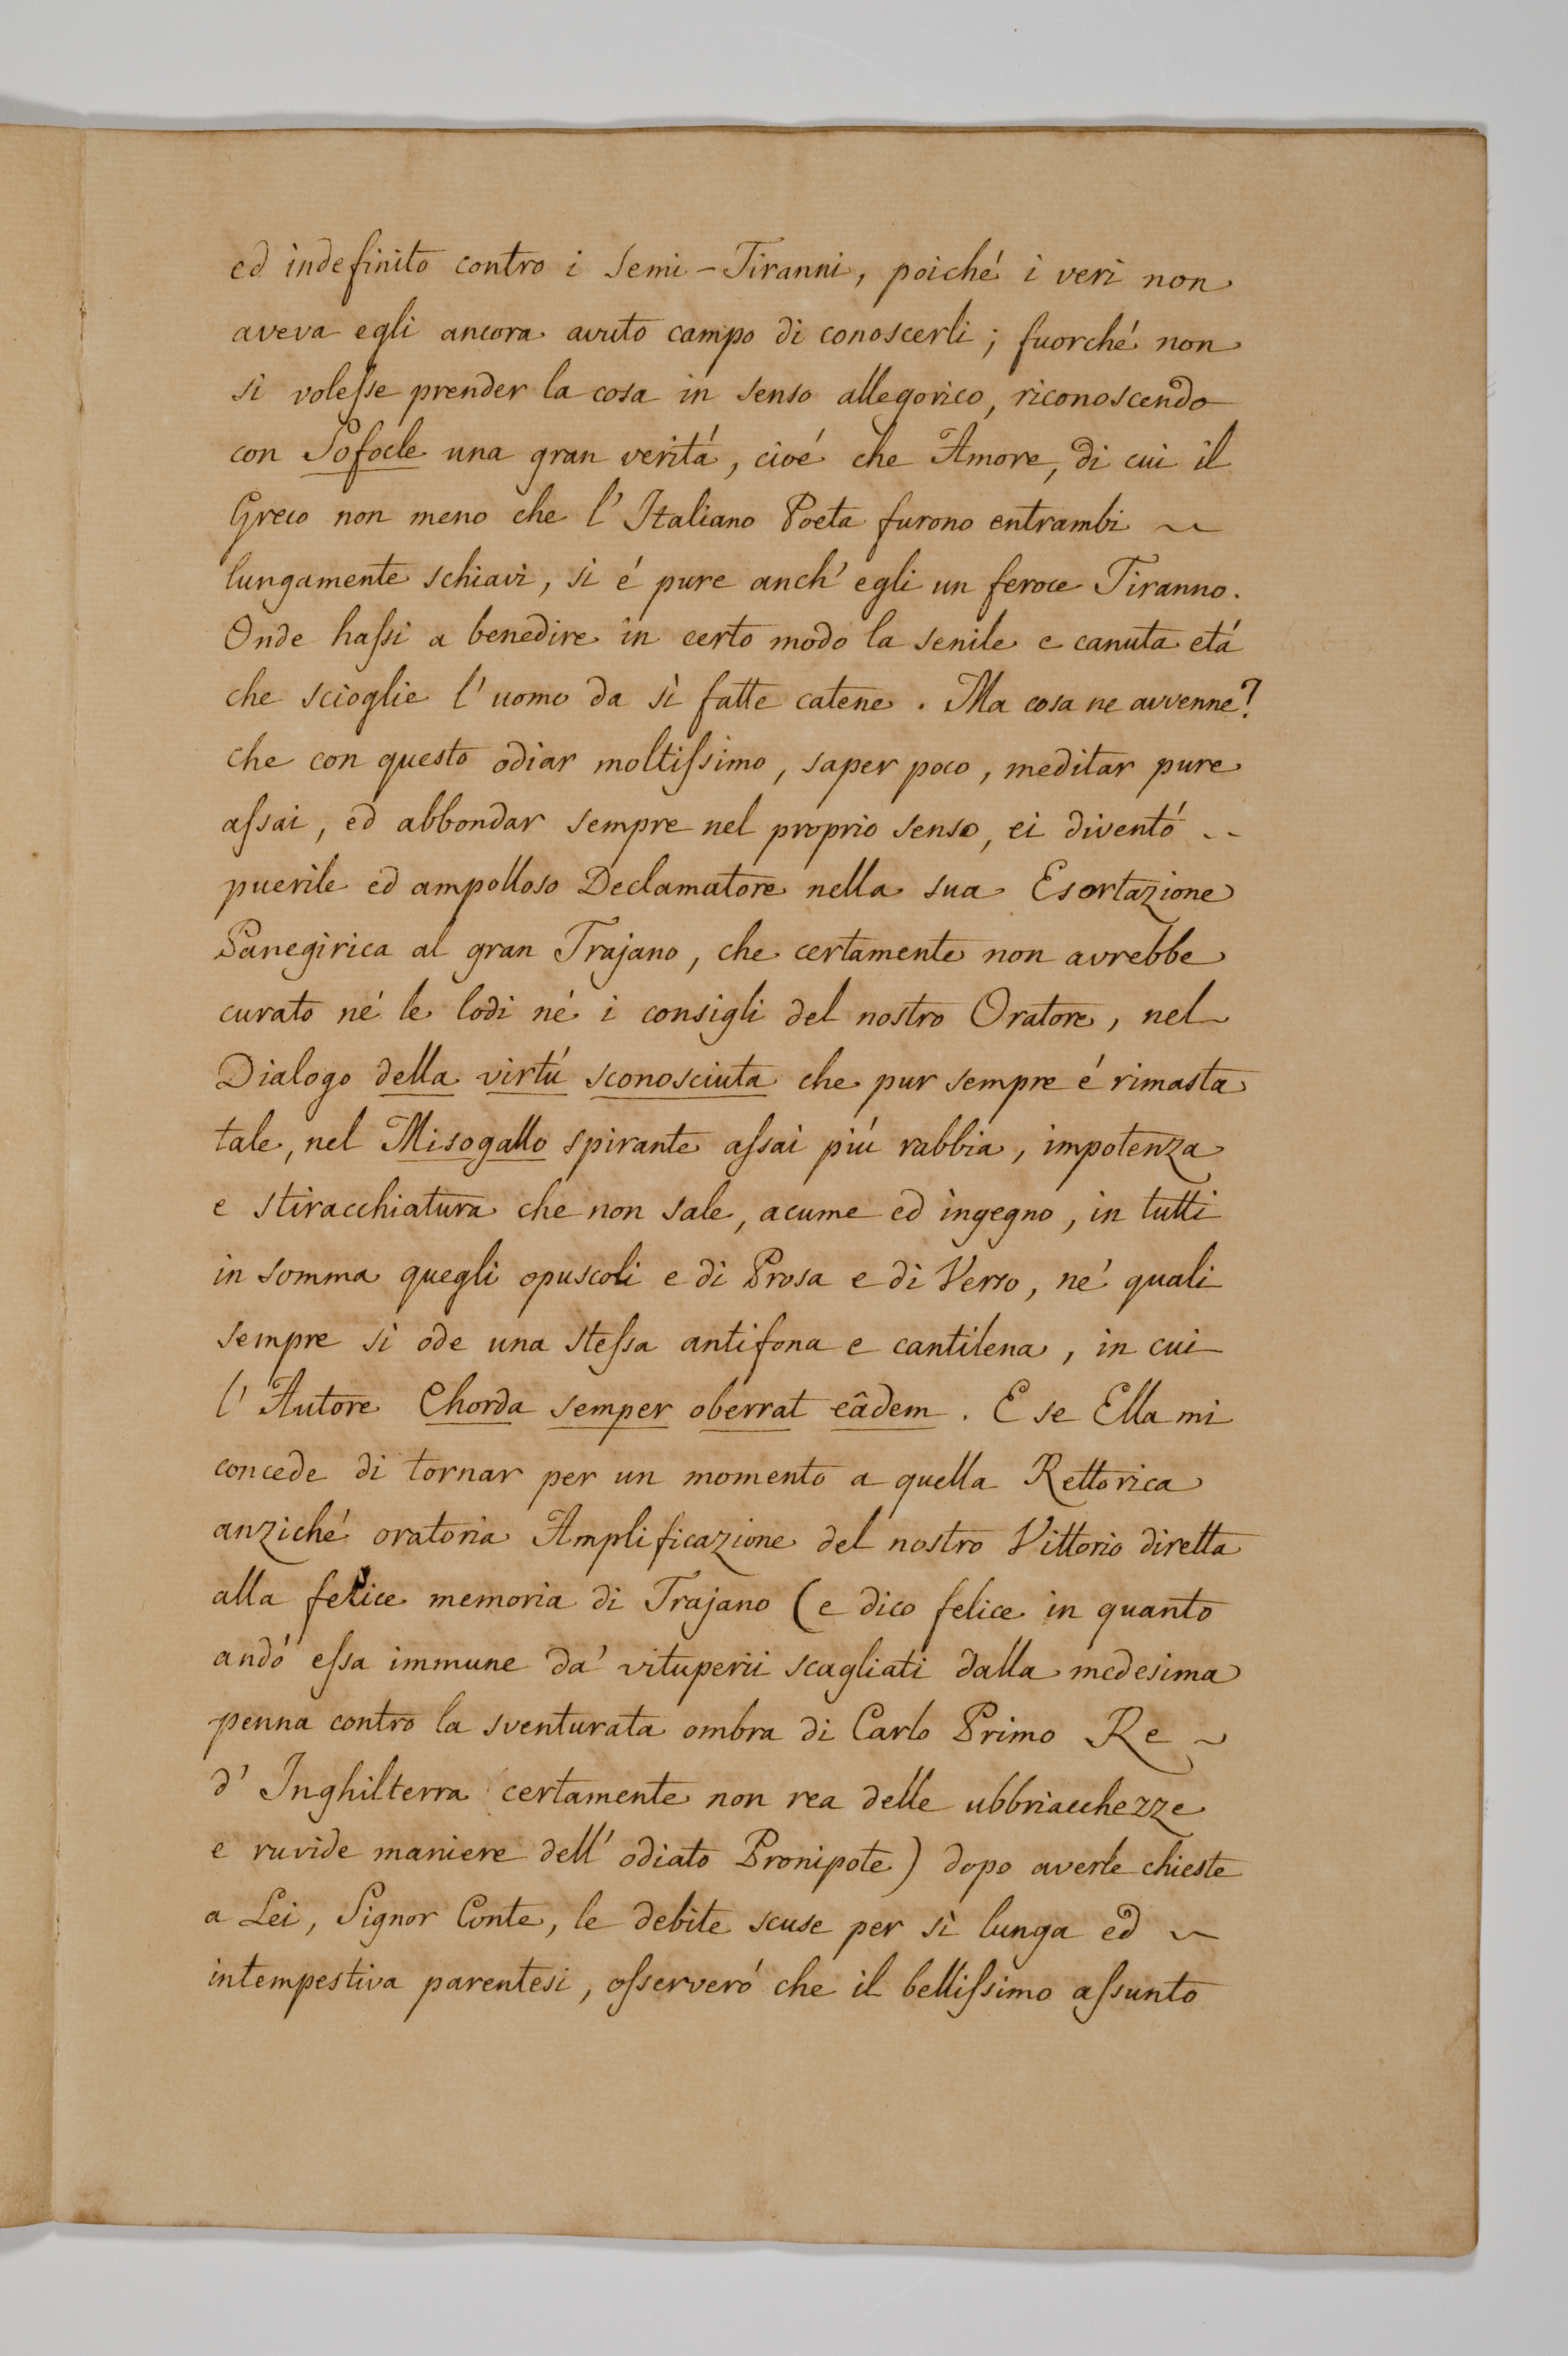 ed indefinito contro i Semi-Tiranni, poiché i veri non
aveva egli ancora avuto campo di conoscerli; fuorché non
si volesse prender la cosa in senso allegorico, riconoscendo
con Sofocle una gran veritá, cioé che Amore, di cui il
Greco non meno che l'Italiano Poeta furono entrambi ~
lungamente schiavi, si é pure anch'egli un feroce Tiranno.
Onde hassi a benedire in certo modo la senile e canuta etá
che scioglie l'uomo da sì fatte catene. Ma cosa ne avvenne?
che con questo odiar moltissimo, saper poco, meditar pure
assai, ed abbondar sempre nel proprio senso, ei diventó ~
puerile ed ampolloso Declamatore nella sua Esortazione
Panegirica al gran Trajano, che certamente non avrebbe
curato né le lodi né i consigli del nostro Oratore, nel
Dialogo della virtú sconosciuta che pur sempre é rimasta
tale, nel Misogallo spirante assai piú rabbia, impotenza
e stiracchiatura che non sale, acume ed ingegno, in tutti
in somma quegli opuscoli e di Prosa e di Verso, ne' quali
sempre si ode una stessa antifona e cantilena, in cui
l'Autore Chorda semper oberrat eâdem. E se Ella mi
concede di tornar per un momento a quella Rettorica
anziché oratoria Amplificazione del nostro Vittorio diretta
alla felice memoria di Trajano (e dico felice in quanto
andó essa immune da' vituperii scagliati dalla medesima
penna contro la sventurata ombra di Carlo Primo Re ~
d'Inghilterra certamente non rea delle ubbriacchezze
e ruvide maniere dell'odiato Pronipote) dopo averle chieste
a Lei, Signor Conte, le debite scuse per sì lunga ed ~
intempestiva parentesi, osserveró che il bellissimo assunto